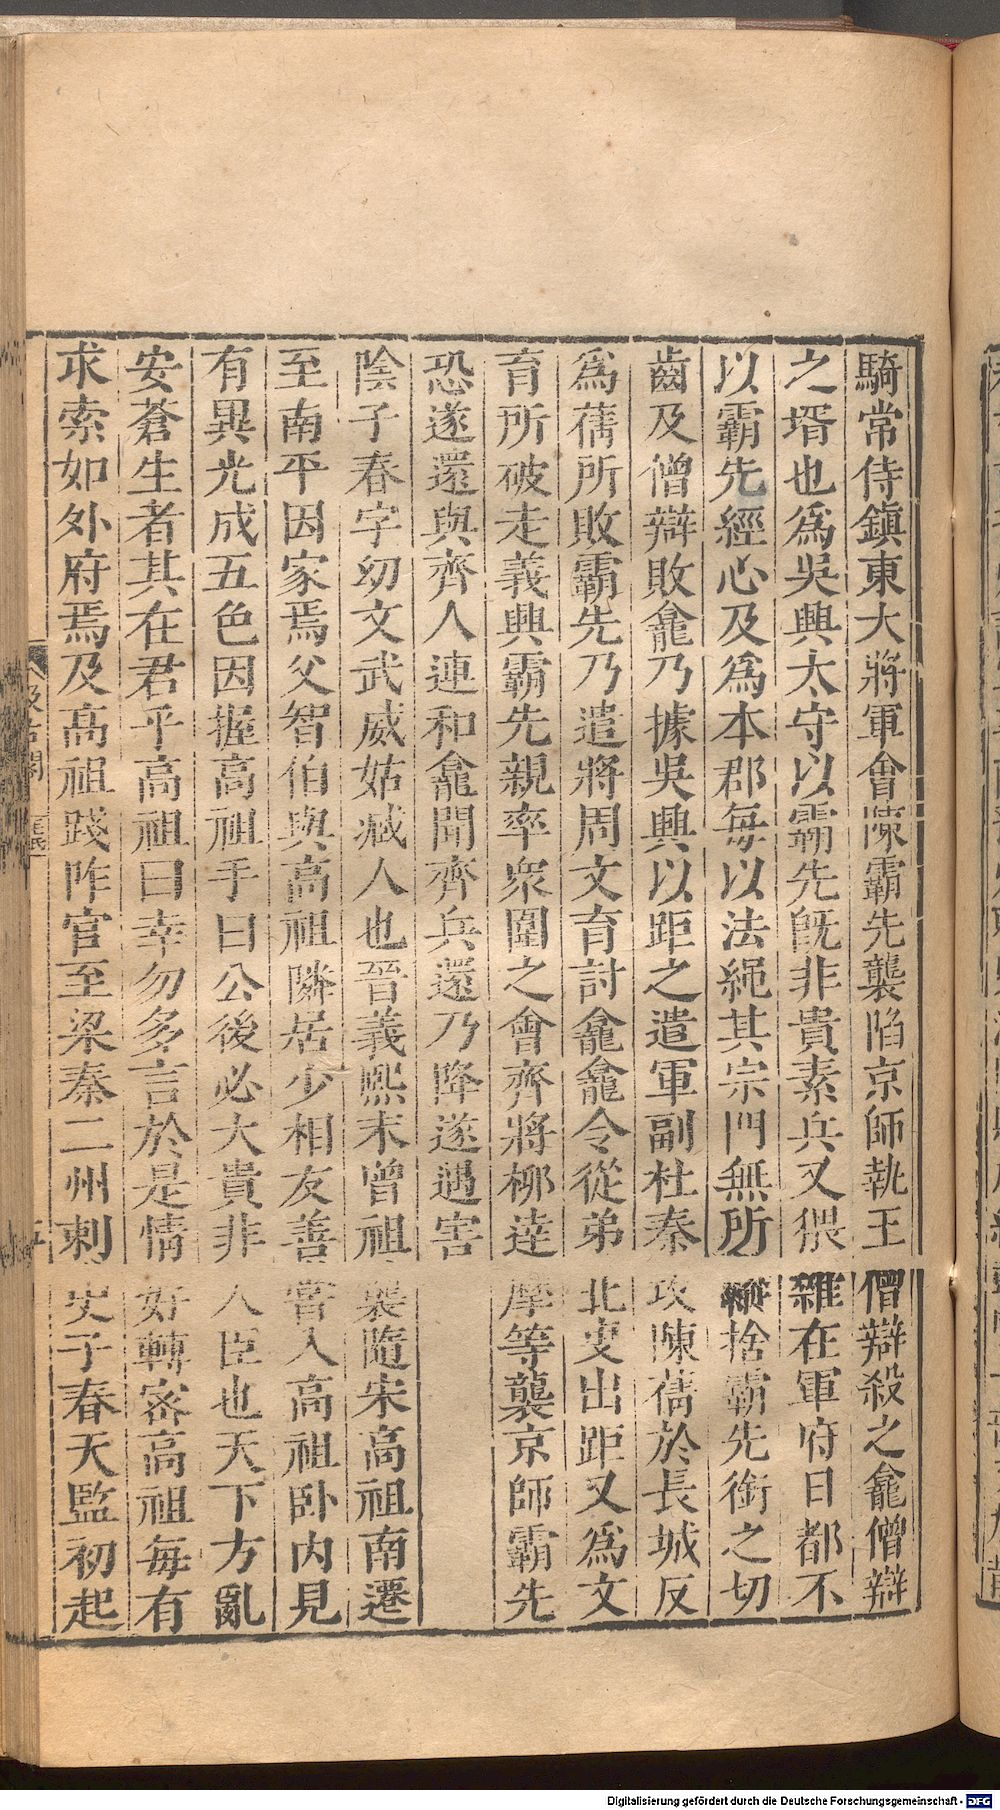 騎常侍鎮東大將軍會陳霸先襲陷京師執王僧辯殺之龕僧辯
之壻也爲吳興太守以霸先旣非貴素兵又猥雜在軍府日都不
以霸先經心及爲本郡每以法繩其宗門無所縱捨霸先銜之切
齒及僧辯敗龕乃據吳興以距之遣軍副杜泰攻陳蒨於長城反
爲蒨所敗霸先乃遣將周文育討龕龕令從弟北叟出距又爲文
育所破走義興霸先親率衆圍之會齊將柳達摩等襲京師霸先
恐遂還與齊人連和龕聞齊兵還乃降遂遇害
陰子春字幼文武威姑臧人也晉義熙末曾祖襲隨宋高祖南遷
至南平因家焉父智伯與高祖隣居少相友善嘗入高祖臥內見
有異光成五色因握高祖手曰公後必大貴非人臣也天下方亂
安蒼生者其在君乎高祖曰幸勿多言於是情好轉密高祖每有
求索如外府焉及高祖踐阼官至梁秦二州刺史子春天監初起
汲古閣
Digitalisierung gefördert durch die Deutsche Forschungsgemeinschaft - DFG